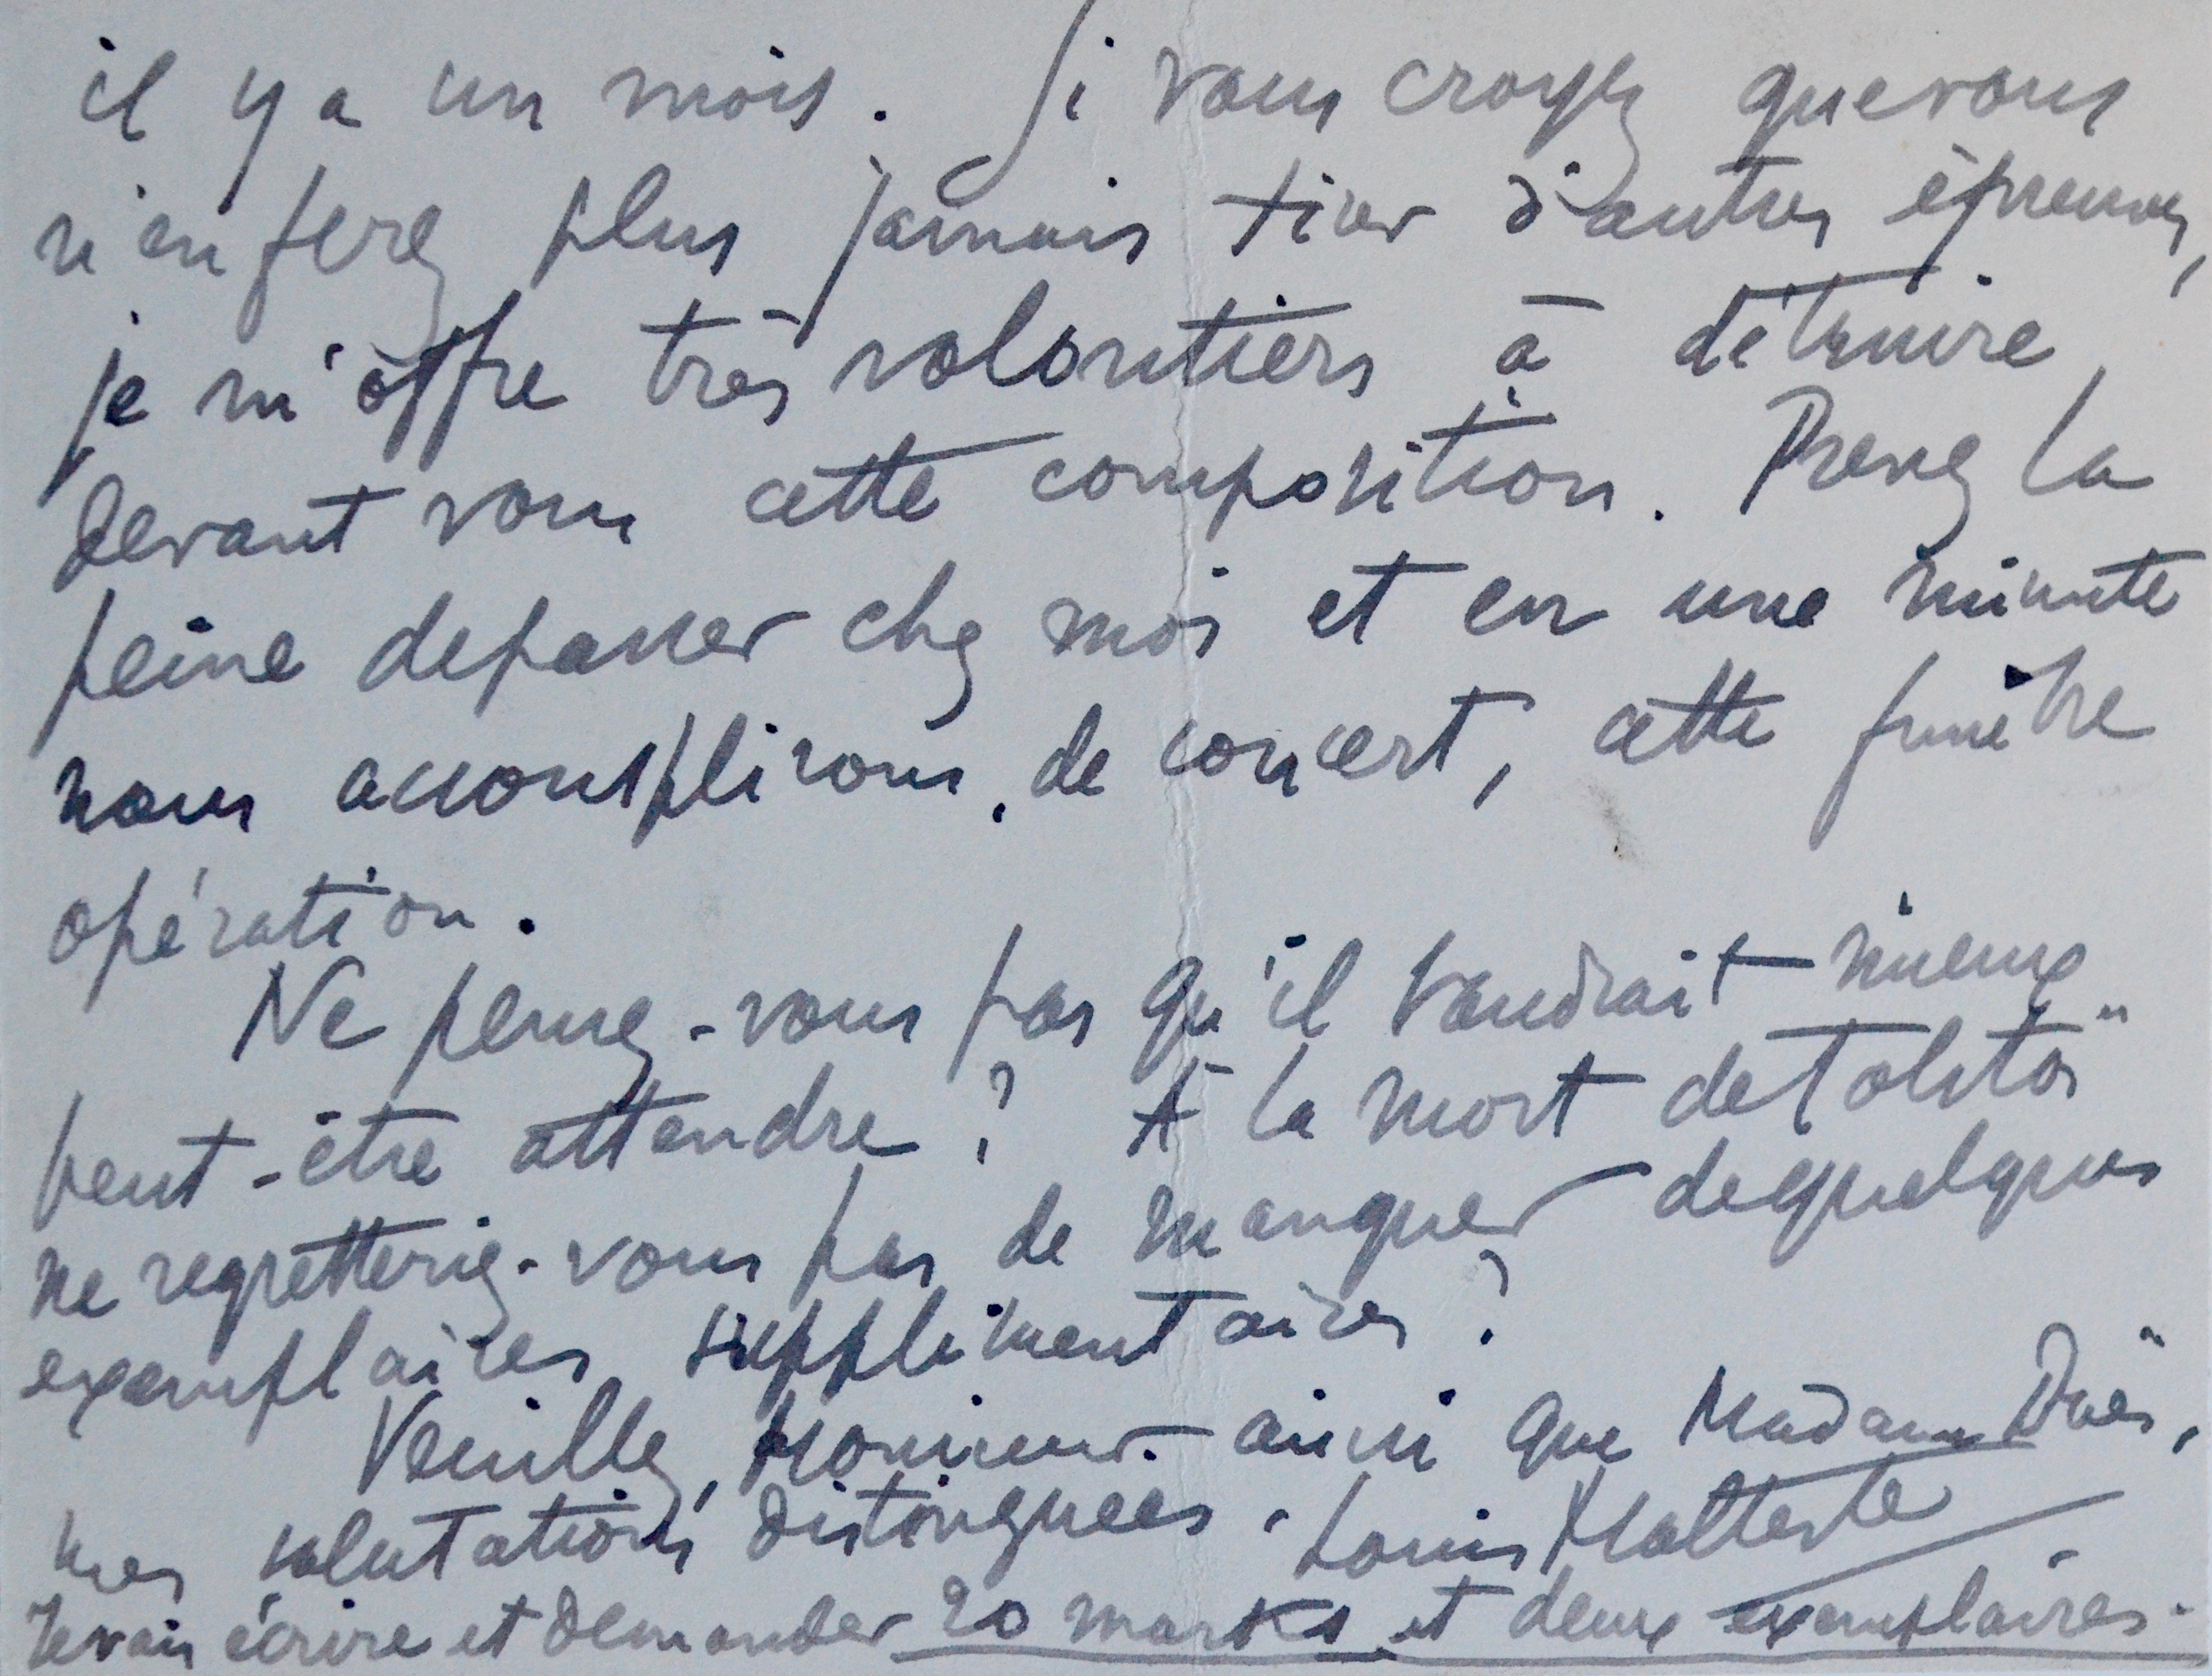 il y a un mois. Si vous croyez que vous
n'en ferez plus jamais tirer d'autres épreuves,
je m'offre très volontiers à détruire
devant vous cette composition. Prenez la
peine de passer chez moi et en une minute
nous accomplirons, de concert, cette funèbre
opération.
Ne pensez-vous pas qu'il vaudrait mieux
peut-être attendre? A la mort de Tolstoï
ne regretteriez-vous pas de manquer de quelques
exemplaires supplémentaires?
Veuillez, Monsieur ainsi que Madame
mes salutations distinguées. Louis Malteste
Je vais écrire et demander 20 marks et deux exemplaires.